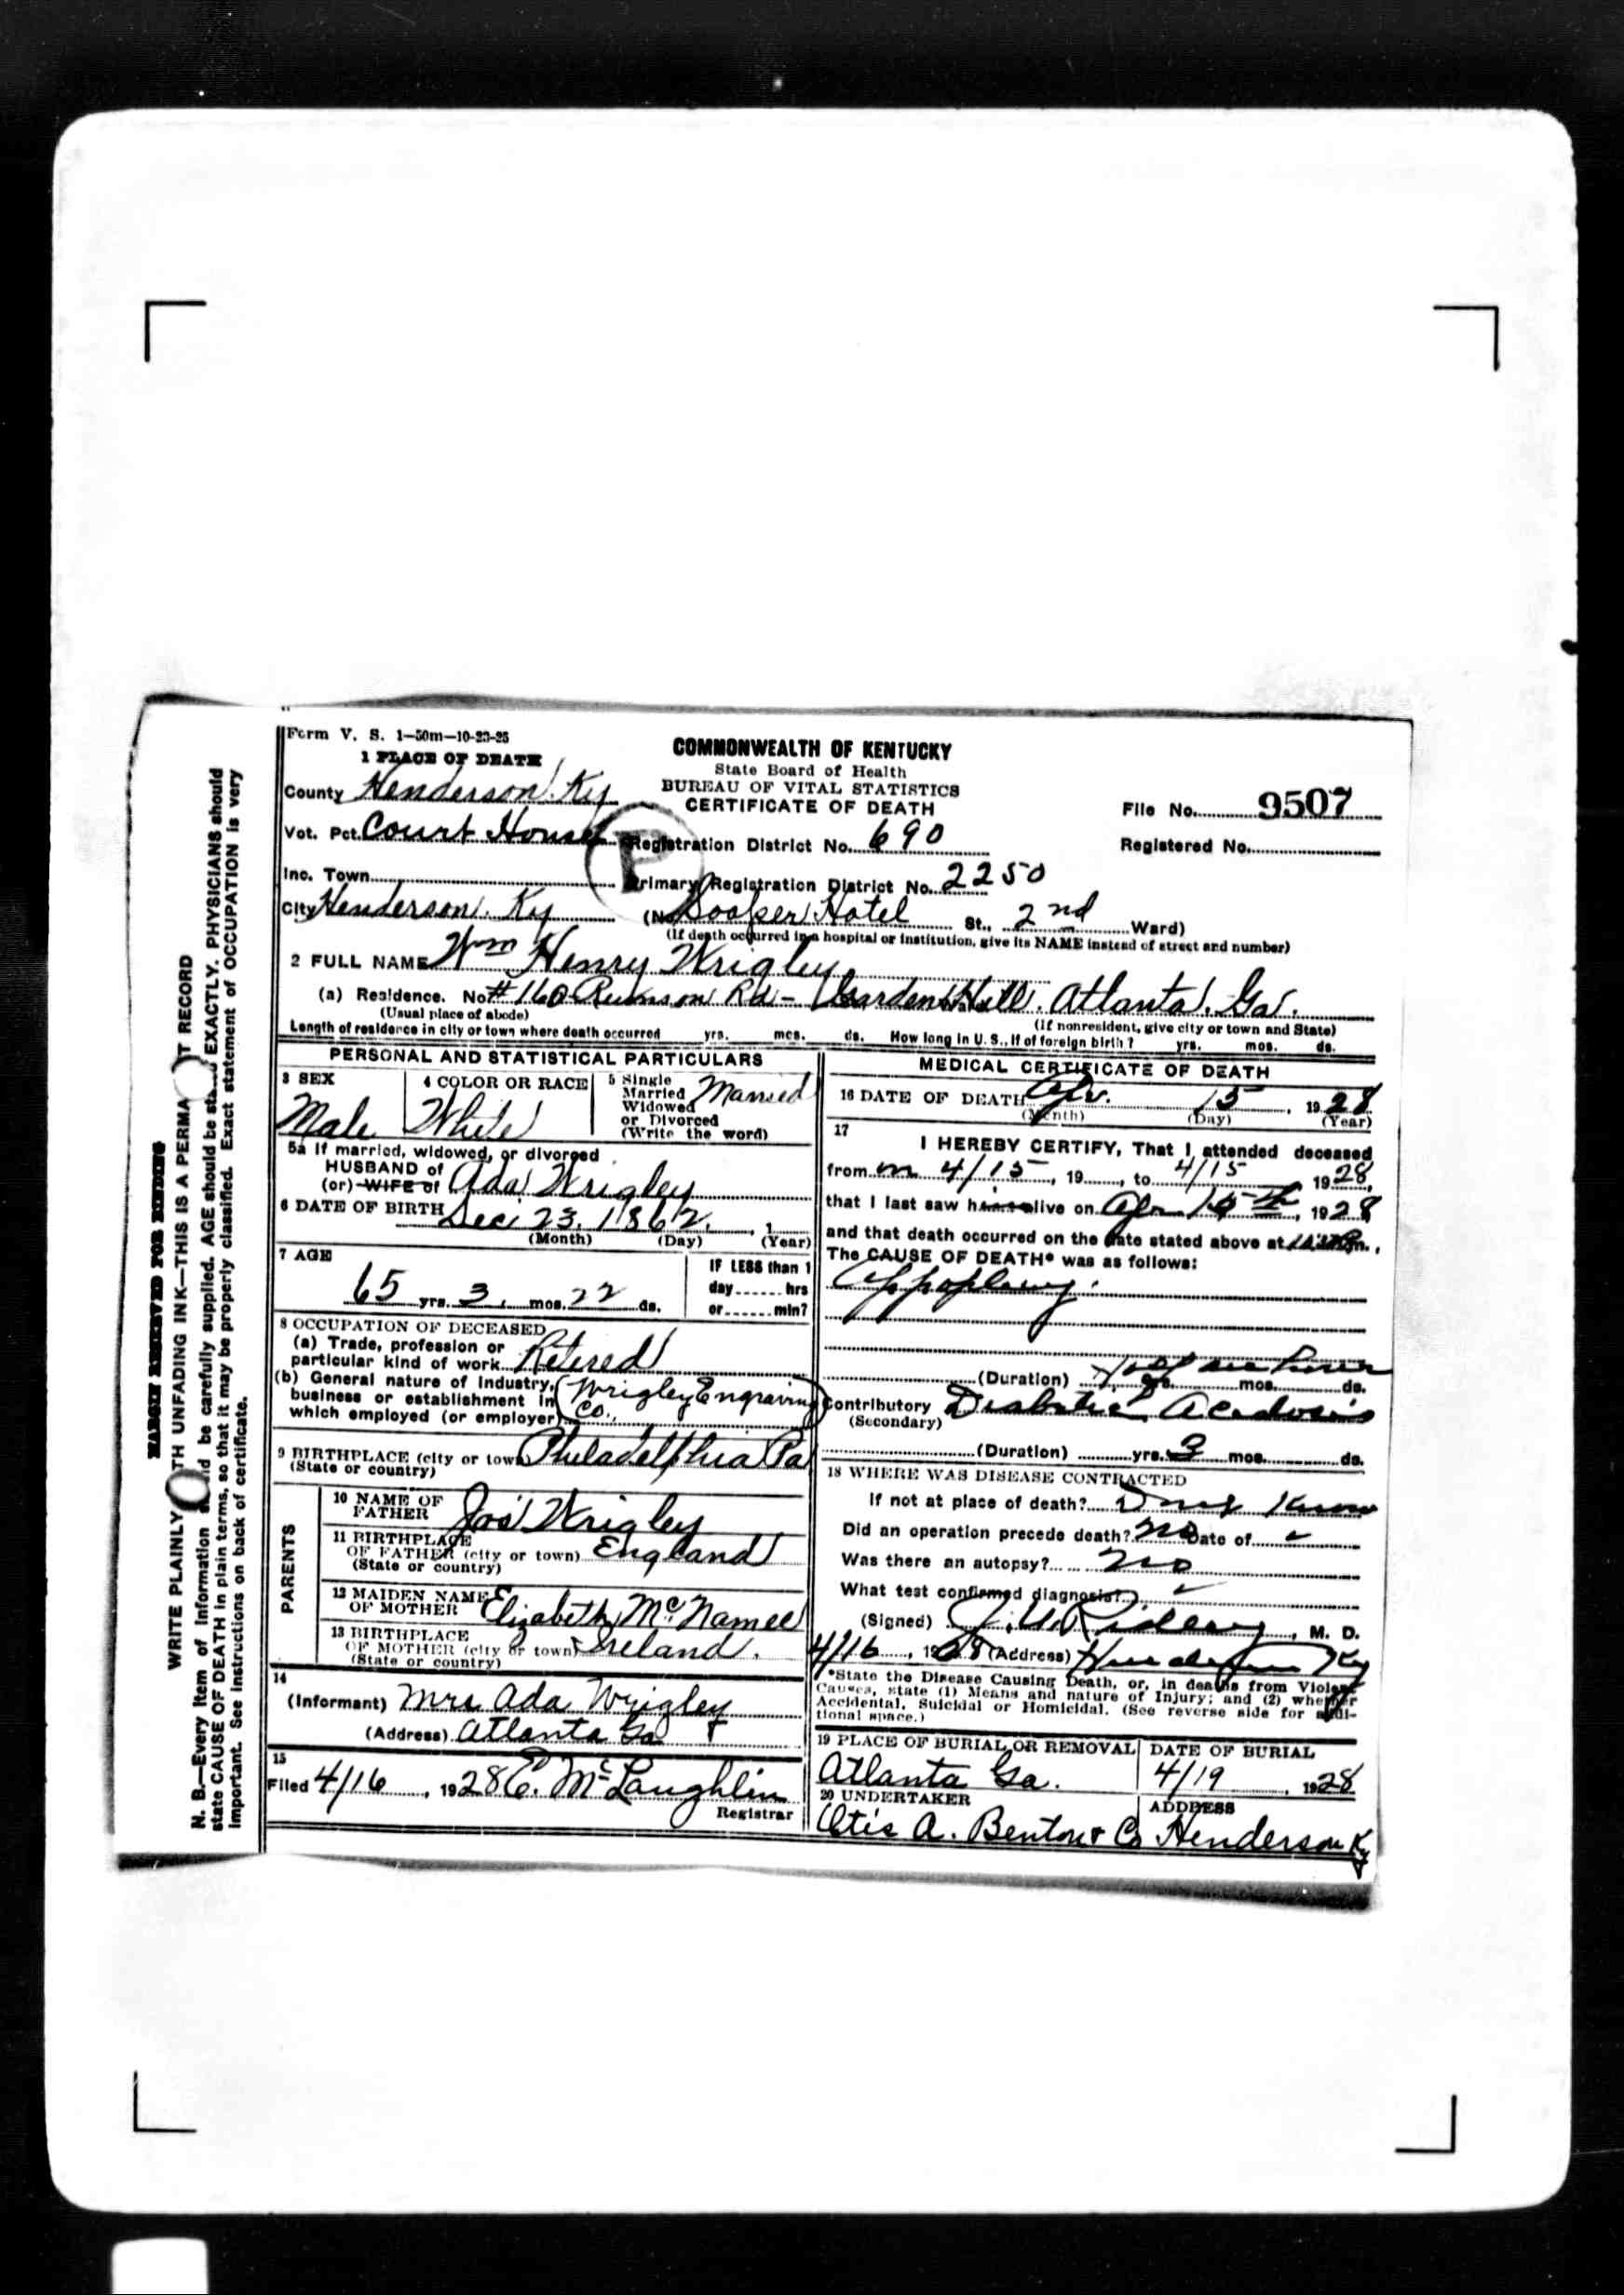 Form V. S. 1—50m—10-23-25
1 PLACE OF DEATH
COMMONWEALTH OF KENTUCKY
State Board of Health
BUREAU OF VITAL STATISTICS
CERTIFICATE OF DEATH
County Henderson Ky
File No. 9507
Vot. Pct. Court House
Registration District No. 690
Registered No.
P
Inc. Town
Primary Registration District No. 2250
City Henderson. Ky
(No. Hotel St., 2nd Ward)
(If death occurred in a hospital or institution, give its NAME instead of street and number)
2 FULL NAME Wm Henry Wrigley
(a) Residence. No. # 160 Rumson Rd - Garden Hill. Atlanta, Ga.
(Usual place of abode)
(If nonresident, give city or town and State)
Length of residence in city or town where death occurred yrs. mos. ds. How long in U. S., if of foreign birth? yrs. mos. ds.
PERSONAL AND STATISTICAL PARTICULARS
3 SEX
Male
4 COLOR OR RACE
White
5 Single
Married
Widowed
or Divorced
(Write the word)
Married
5a If married, widowed, or divorced
HUSBAND of
(or) WIFE of Ada Wrigley
6 DATE OF BIRTH Dec. 23. 1862.
(Month) (Day) (Year)
7 AGE
65 yrs. 3 mos. 22 ds.
IF LESS than 1
day...... hrs
or...... min?
8 OCCUPATION OF DECEASED
(a) Trade, profession or
particular kind of work Retired
(b) General nature of Industry,
business or establishment in
which employed (or employer) (Wrigley Engraving Co.)
9 BIRTHPLACE (city or town) Philadelphia Pa
(State or country)
PARENTS
10 NAME OF
FATHER Jos Wrigley
11 BIRTHPLACE
OF FATHER (city or town) England
(State or country)
12 MAIDEN NAME
OF MOTHER Elizabeth McNamee
13 BIRTHPLACE
OF MOTHER (city or town) Ireland.
(State or country)
14
(Informant) Mrs Ada Wrigley
(Address) Atlanta Ga
15
Filed 4/16, 1928 E. McLaughlin
Registrar
MEDICAL CERTIFICATE OF DEATH
16 DATE OF DEATH Apr. 15, 1928
(Month) (Day) (Year)
17
I HEREBY CERTIFY, That I attended deceased
from 4/15, 19......, to 4/15 1928,
that I last saw h alive on Apr 15th, 1928
and that death occurred on the date stated above at m.,
The CAUSE OF DEATH* was as follows:
Appoplexy.
(Duration) Half an hour yrs. mos. ds.
Contributory Diabetic Acidosis
(Secondary)
(Duration) yrs. 3 mos. ds.
18 WHERE WAS DISEASE CONTRACTED
If not at place of death? Dont Know
Did an operation precede death? No Date of
Was there an autopsy? No
What test confirmed diagnosis?
(Signed) M. D.
4/16, 1928 (Address) Henderson Ky
*State the Disease Causing Death, or, in deaths from Violent
Causes, state (1) Means and nature of Injury; and (2) whether
Accidental, Suicidal or Homicidal. (See reverse side for addi-
tional space.)
19 PLACE OF BURIAL OR REMOVAL
Atlanta Ga.
DATE OF BURIAL
4/19, 1928
20 UNDERTAKER
Otis A. Benton & Co
ADDRESS
Henderson Ky
MARGIN RESERVED FOR BINDING
WRITE PLAINLY WITH UNFADING INK—THIS IS A PERMA T RECORD
N. B.—Every item of information should be carefully supplied. AGE should be stated EXACTLY. PHYSICIANS should
state CAUSE OF DEATH in plain terms, so that it may be properly classified. Exact statement of OCCUPATION is very
important. See instructions on back of certificate.